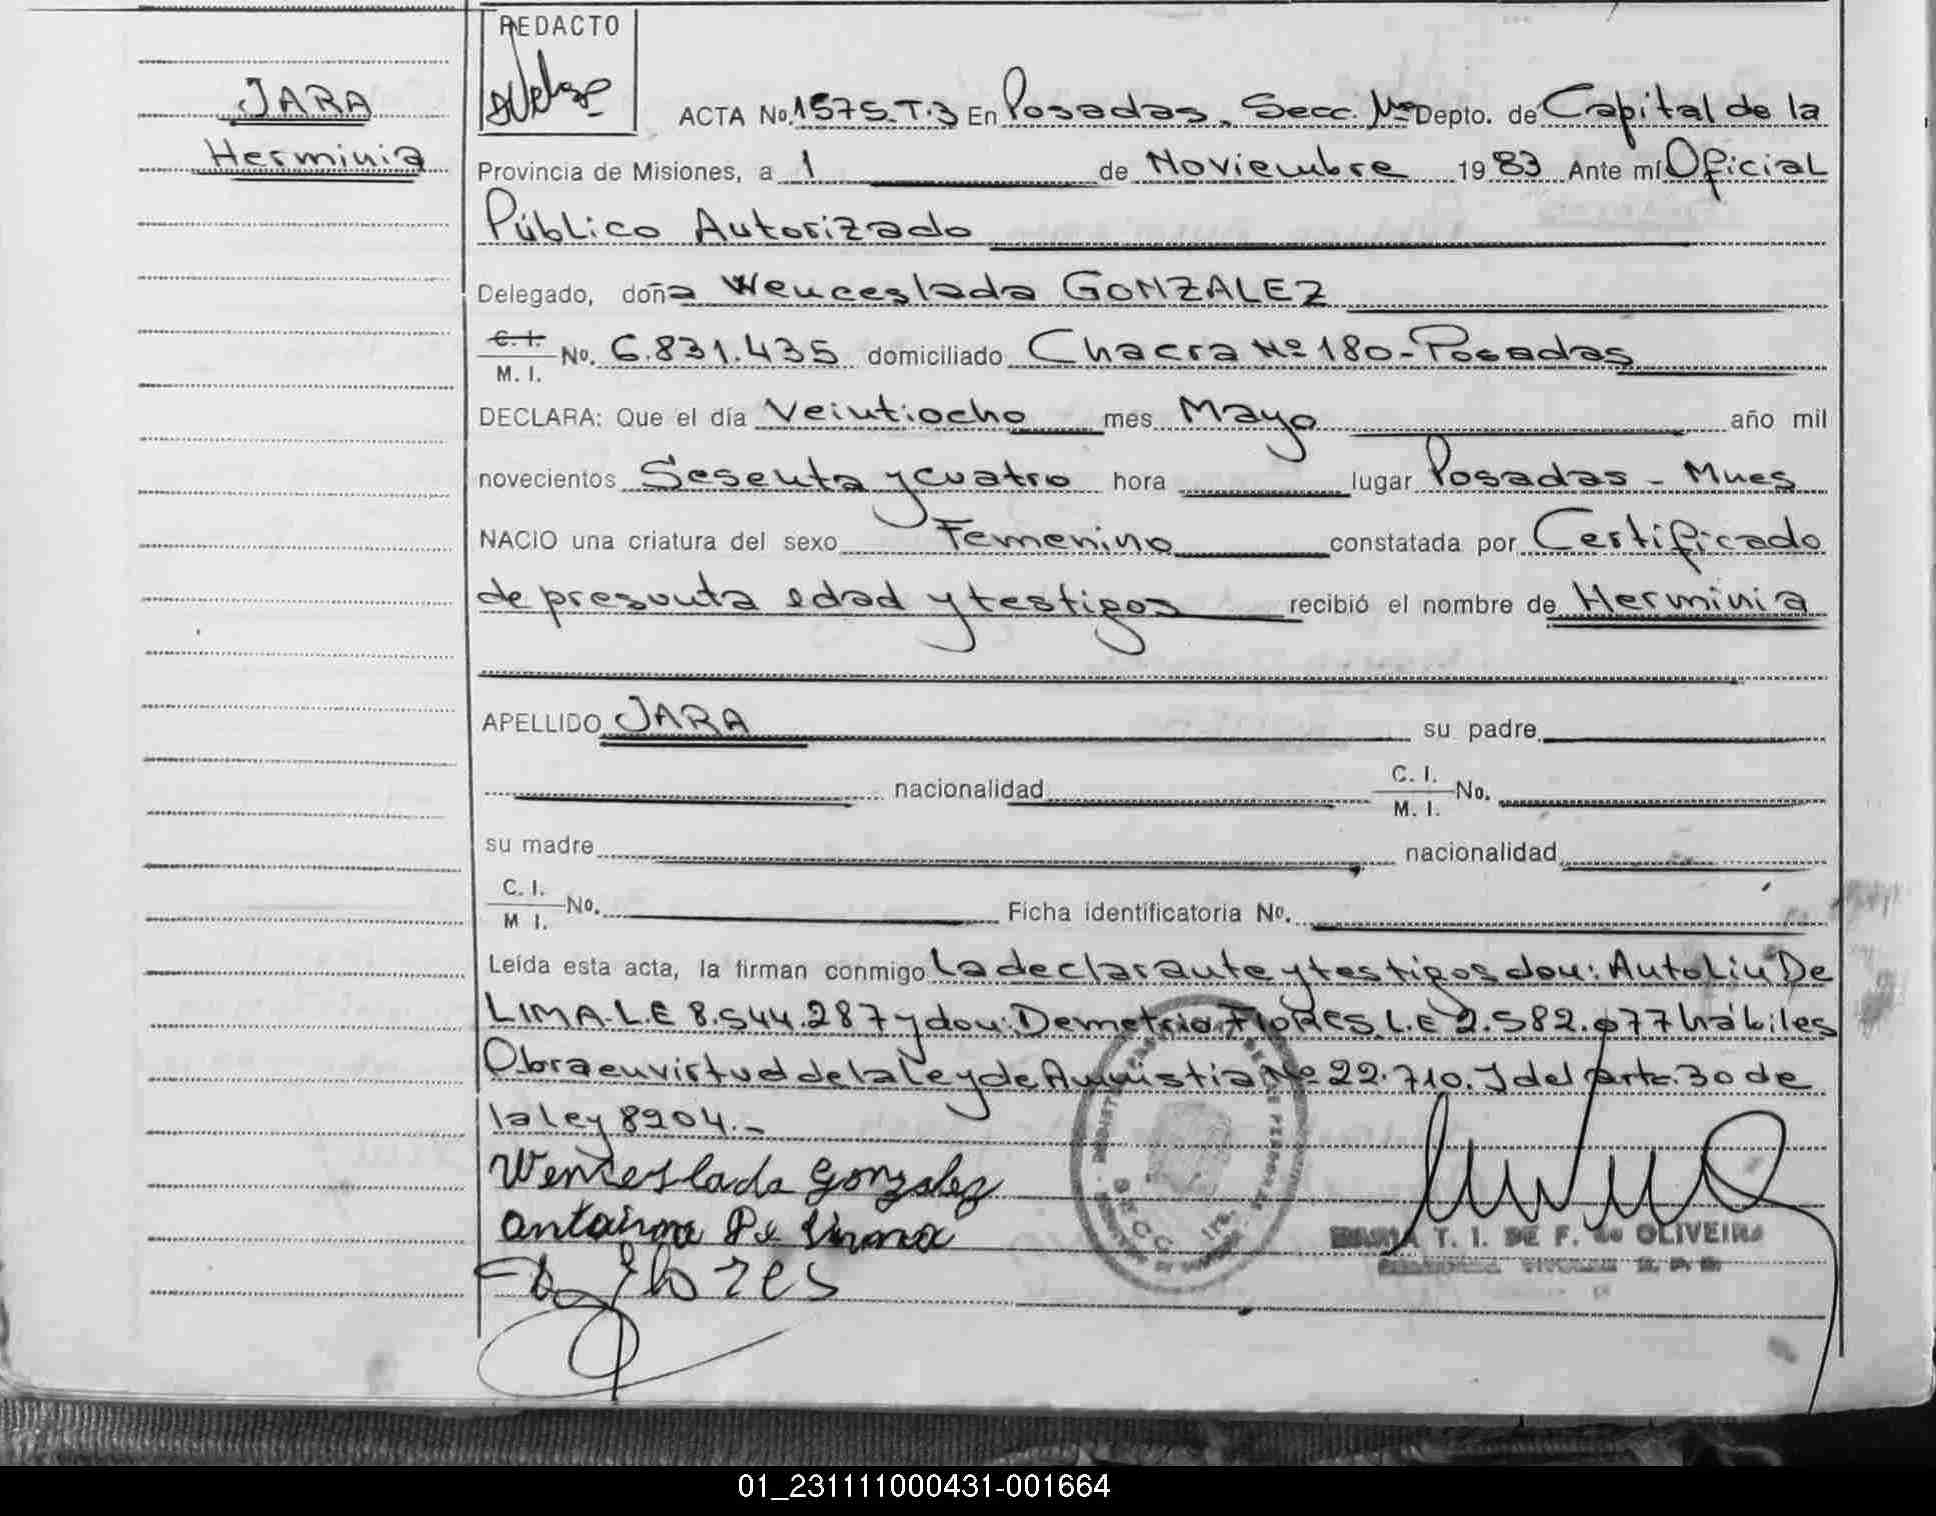 REDACTO
JARA
Herminia
ACTA No. 1575.T.3 En Posadas, Secc. Depto. de Capital de la
Provincia de Misiones, a 1 de Noviembre 19 83 Ante mí Oficial
Público Autorizado
Delegado, doña Wenceslada GONZALEZ
C. I. M. I. No. 6.831.435 domiciliado Chacra Nº 180 - Posadas
DECLARA: Que el día Veintiocho mes Mayo año mil
novecientos Sesenta y cuatro hora lugar Posadas - Mnes
NACIO una criatura del sexo Femenino constatada por Certificado
de presunta edad y testigos recibió el nombre de Herminia
APELLIDO JARA su padre
nacionalidad C. I. M. I. No.
su madre nacionalidad
C. I. M I. No. Ficha identificatoria No.
Leída esta acta, la firman conmigo La declarante y testigos don: Antoliu De
LIMA. L.E 8.544.287 y don: Demetrio FLORES L.E 2.582.077 hábiles
Obra en virtud de la Ley de Amnistia Nº 22.710. Y del art. 30 de
la ley 8204.-
Wenceslada Gonzalez
Flores
SECC. 1ra.
MARIA T. I. DE F. de OLIVEIRA
01_231111000431-001664